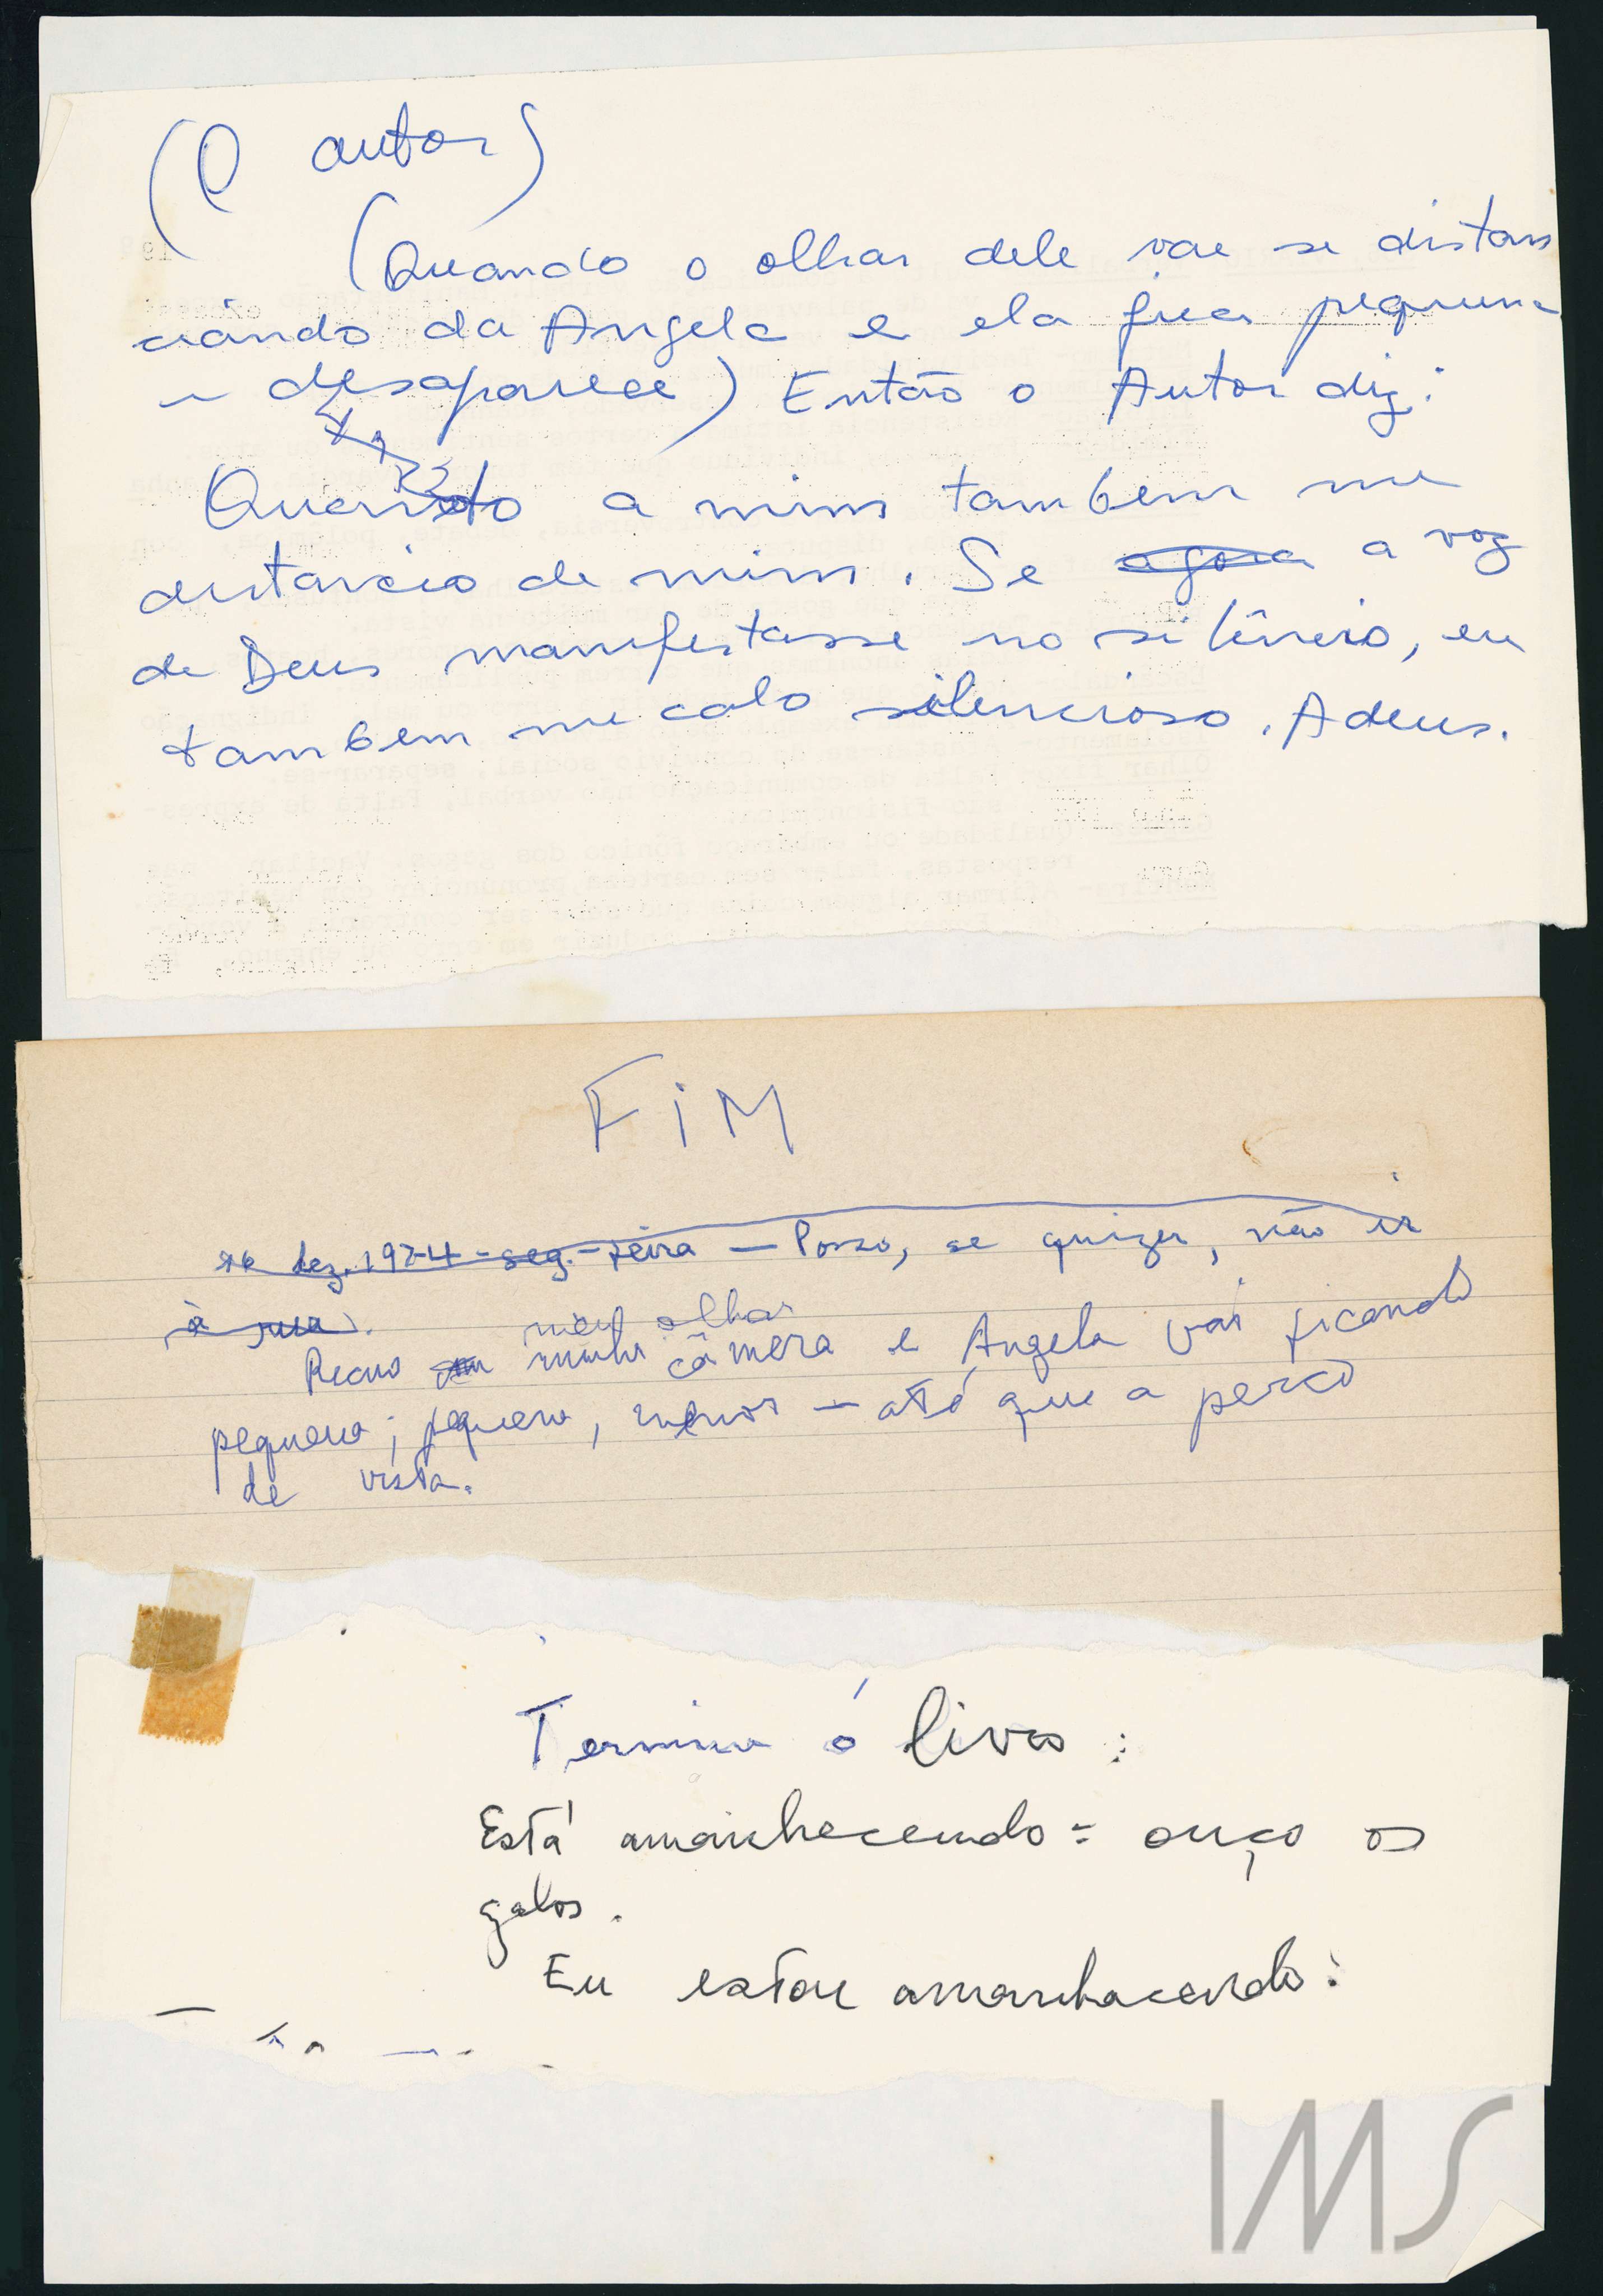 (O autor)
(Quando o olhar dele vae se distan
ciando da Angela e ela fica pequena
e desaparece) Então o Autor diz:
Quanto a mim tambem me
distancio de mim. Se agora a voz
de Deus manifestasse no silêncio, eu
tambem me calo silencioso. Adeus.
FiM
dez. 1974 - seg. - feira — Posso, se quizer, não ir
à rua.
meu olhar
Recuo minha câmera e Angela vai ficando
pequena; pequena, menor — até que a perco
de vista.
Termina o livro:
Está amanhecendo: ouço os
galos.
Eu estou amanhecendo:
IMS